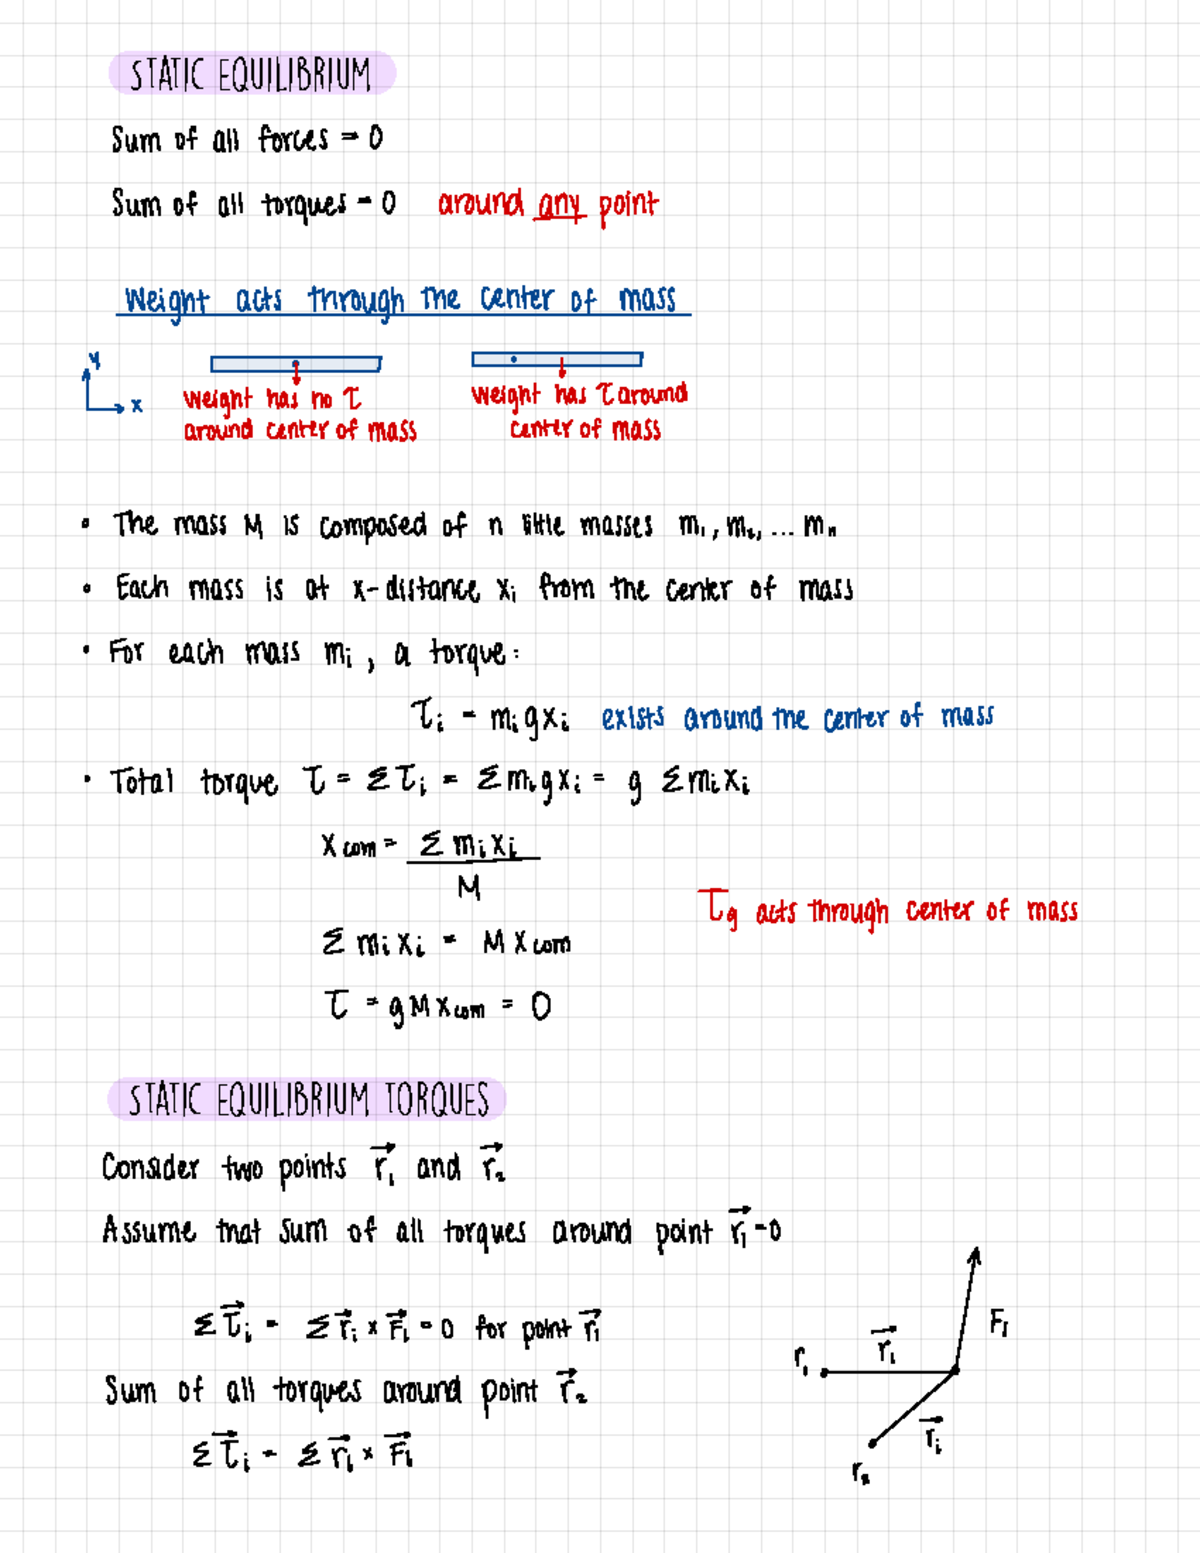 STATIC EQUILIBRIUM
Sum of all forces = 0
Sum of all torques = 0 around any point
Weight acts through the center of mass
y
x
weight has no τ
around center of mass
weight has τ around
center of mass
• The mass M is composed of n little masses m₁, m₂, ... mₙ
• Each mass is at x-distance xᵢ from the center of mass
• For each mass mᵢ, a torque:
τᵢ = mᵢgxᵢ exists around the center of mass
• Total torque τ = Στᵢ = Σmᵢgxᵢ = g Σmᵢxᵢ
x com = Σmᵢxᵢ
M
τg acts through center of mass
Σmᵢxᵢ = M x com
τ = gMx com = 0
STATIC EQUILIBRIUM TORQUES
Consider two points r⃗₁ and r⃗₂
Assume that sum of all torques around point r⃗₁ = 0
Στ⃗ᵢ = Σr⃗ᵢ × F⃗ᵢ = 0 for point r⃗₁
Sum of all torques around point r⃗₂
Στ⃗ᵢ = Σr⃗ᵢ × F⃗ᵢ
r₁
r⃗ᵢ
Fᵢ
r⃗ᵢ
r₂